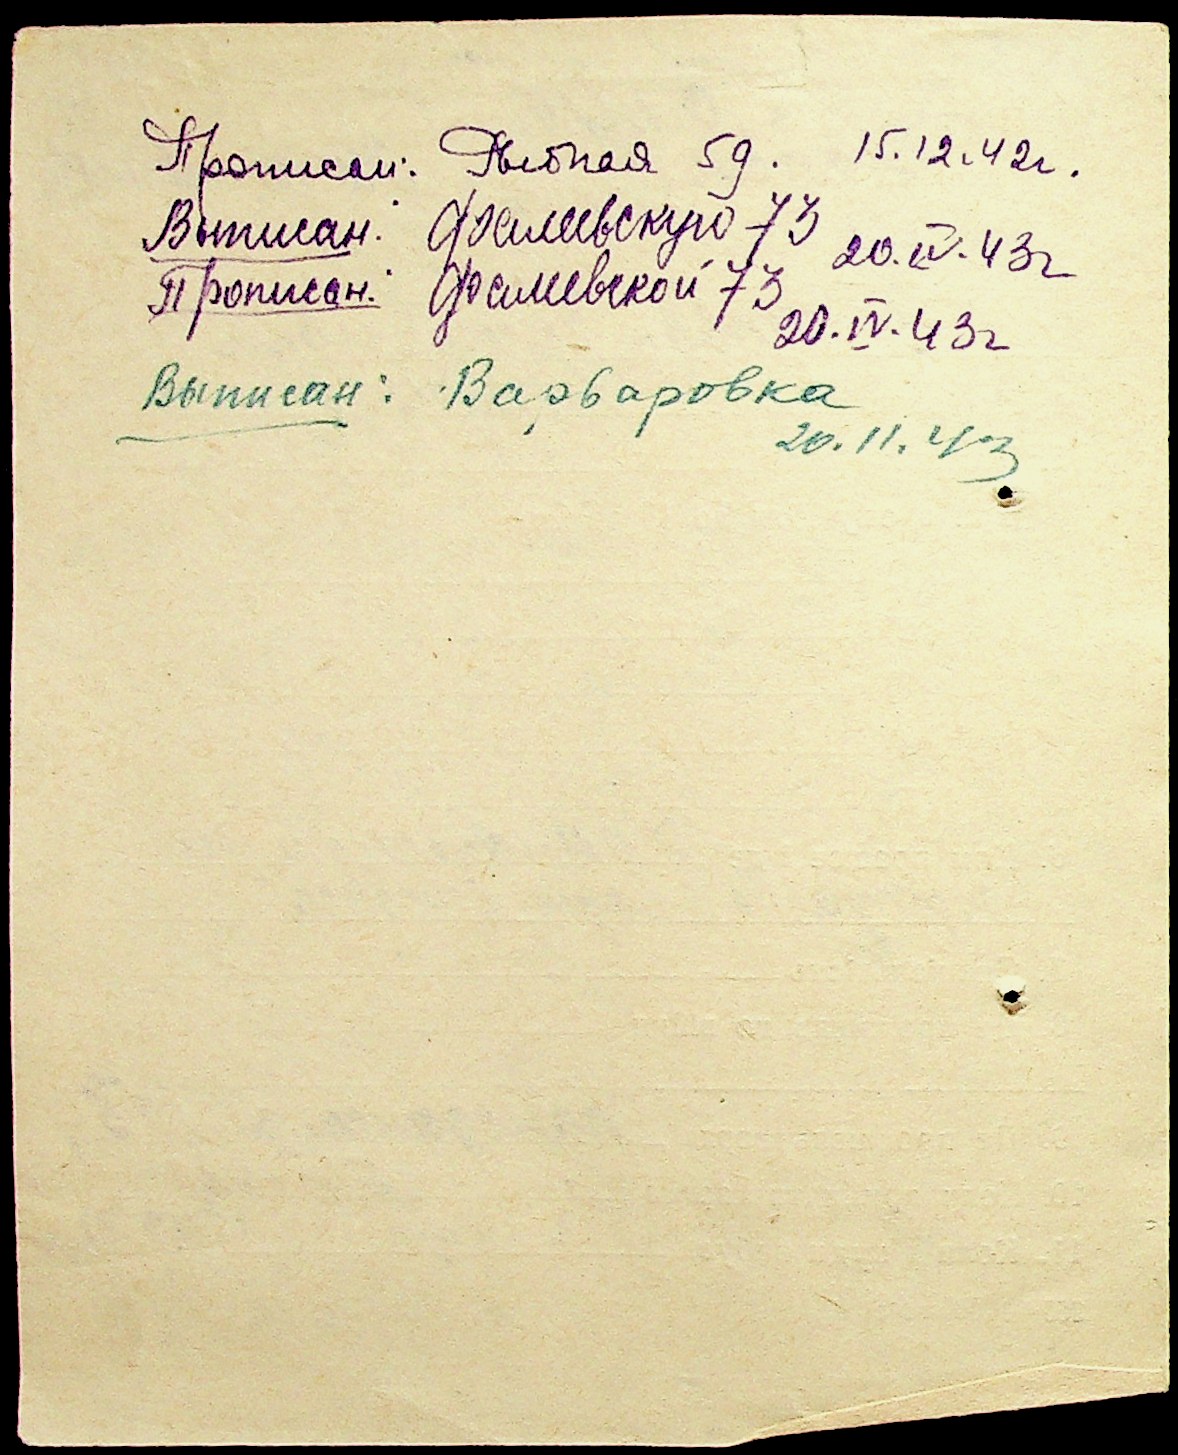 Прописан: Рыбная 59. 15.12.42г.
Выписан: Фалеевскую 73 20.IV.43г
Прописан: Фалеевской 73
20.IV.43г
Выписан: Варваровка
20.11.43